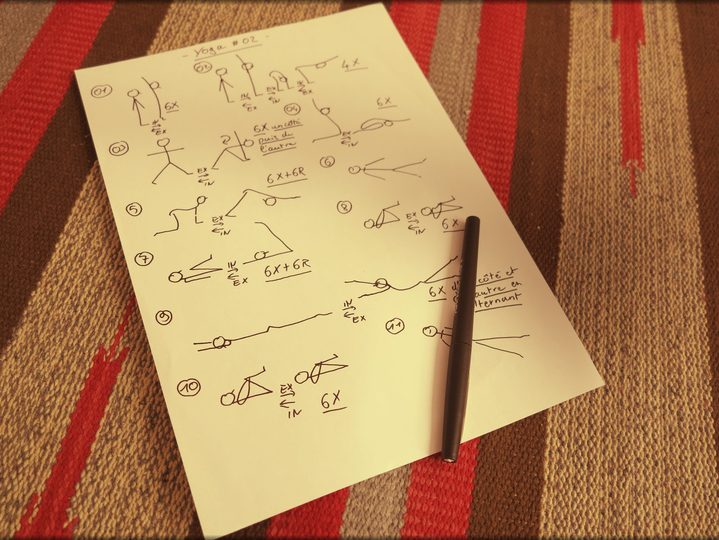 - Yoga #02 -
01
IN
EX
6X
02
IN
EX
EX
IN
IN
EX
4X
03
EX
IN
6X un côté
puis de
l'autre
04
IN
EX
6X
5
EX
IN
6X+6R
6
7
IN
EX
6X+6R
8
EX
IN
6X
9
IN
EX
6X d'
côté et
autre en
lternant
10
EX
IN
6X
11